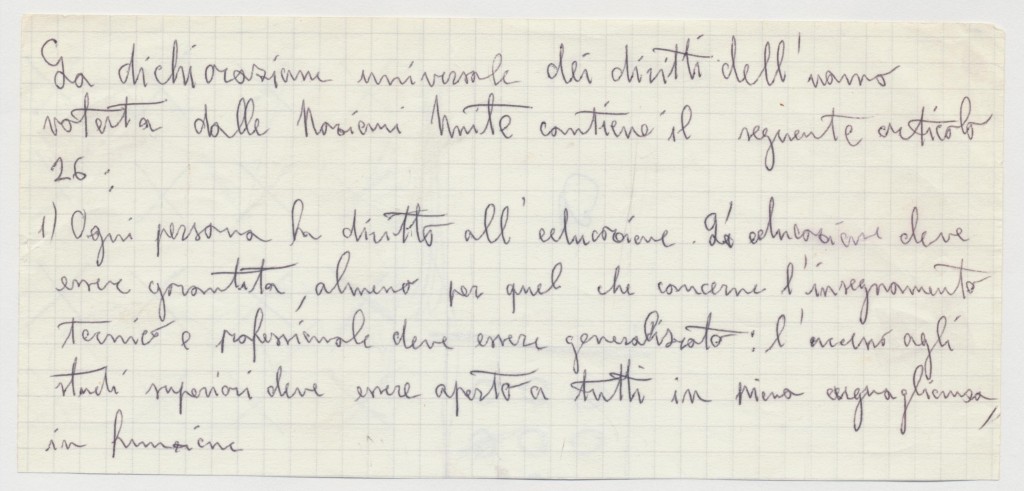 La dichiarazione universale dei diritti dell'uomo
votata dalle Nazioni Unite contiene il seguente articolo
26:
1) Ogni persona ha diritto all'educazione. L'educazione deve
essere garantita, almeno per quel che concerne l'insegnamento
tecnico e professionale deve essere generalizzato: l'accesso agli
studi superiori deve essere aperto a tutti in piena eguaglianza,
in funzione